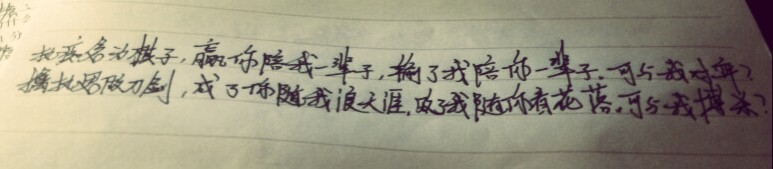 为棋子,赢你陪我一辈子,输了我陪你一辈子.可与我对弈?
做刀剑,成了你随我浪天涯,败了我随你看花落.可与我搏杀?